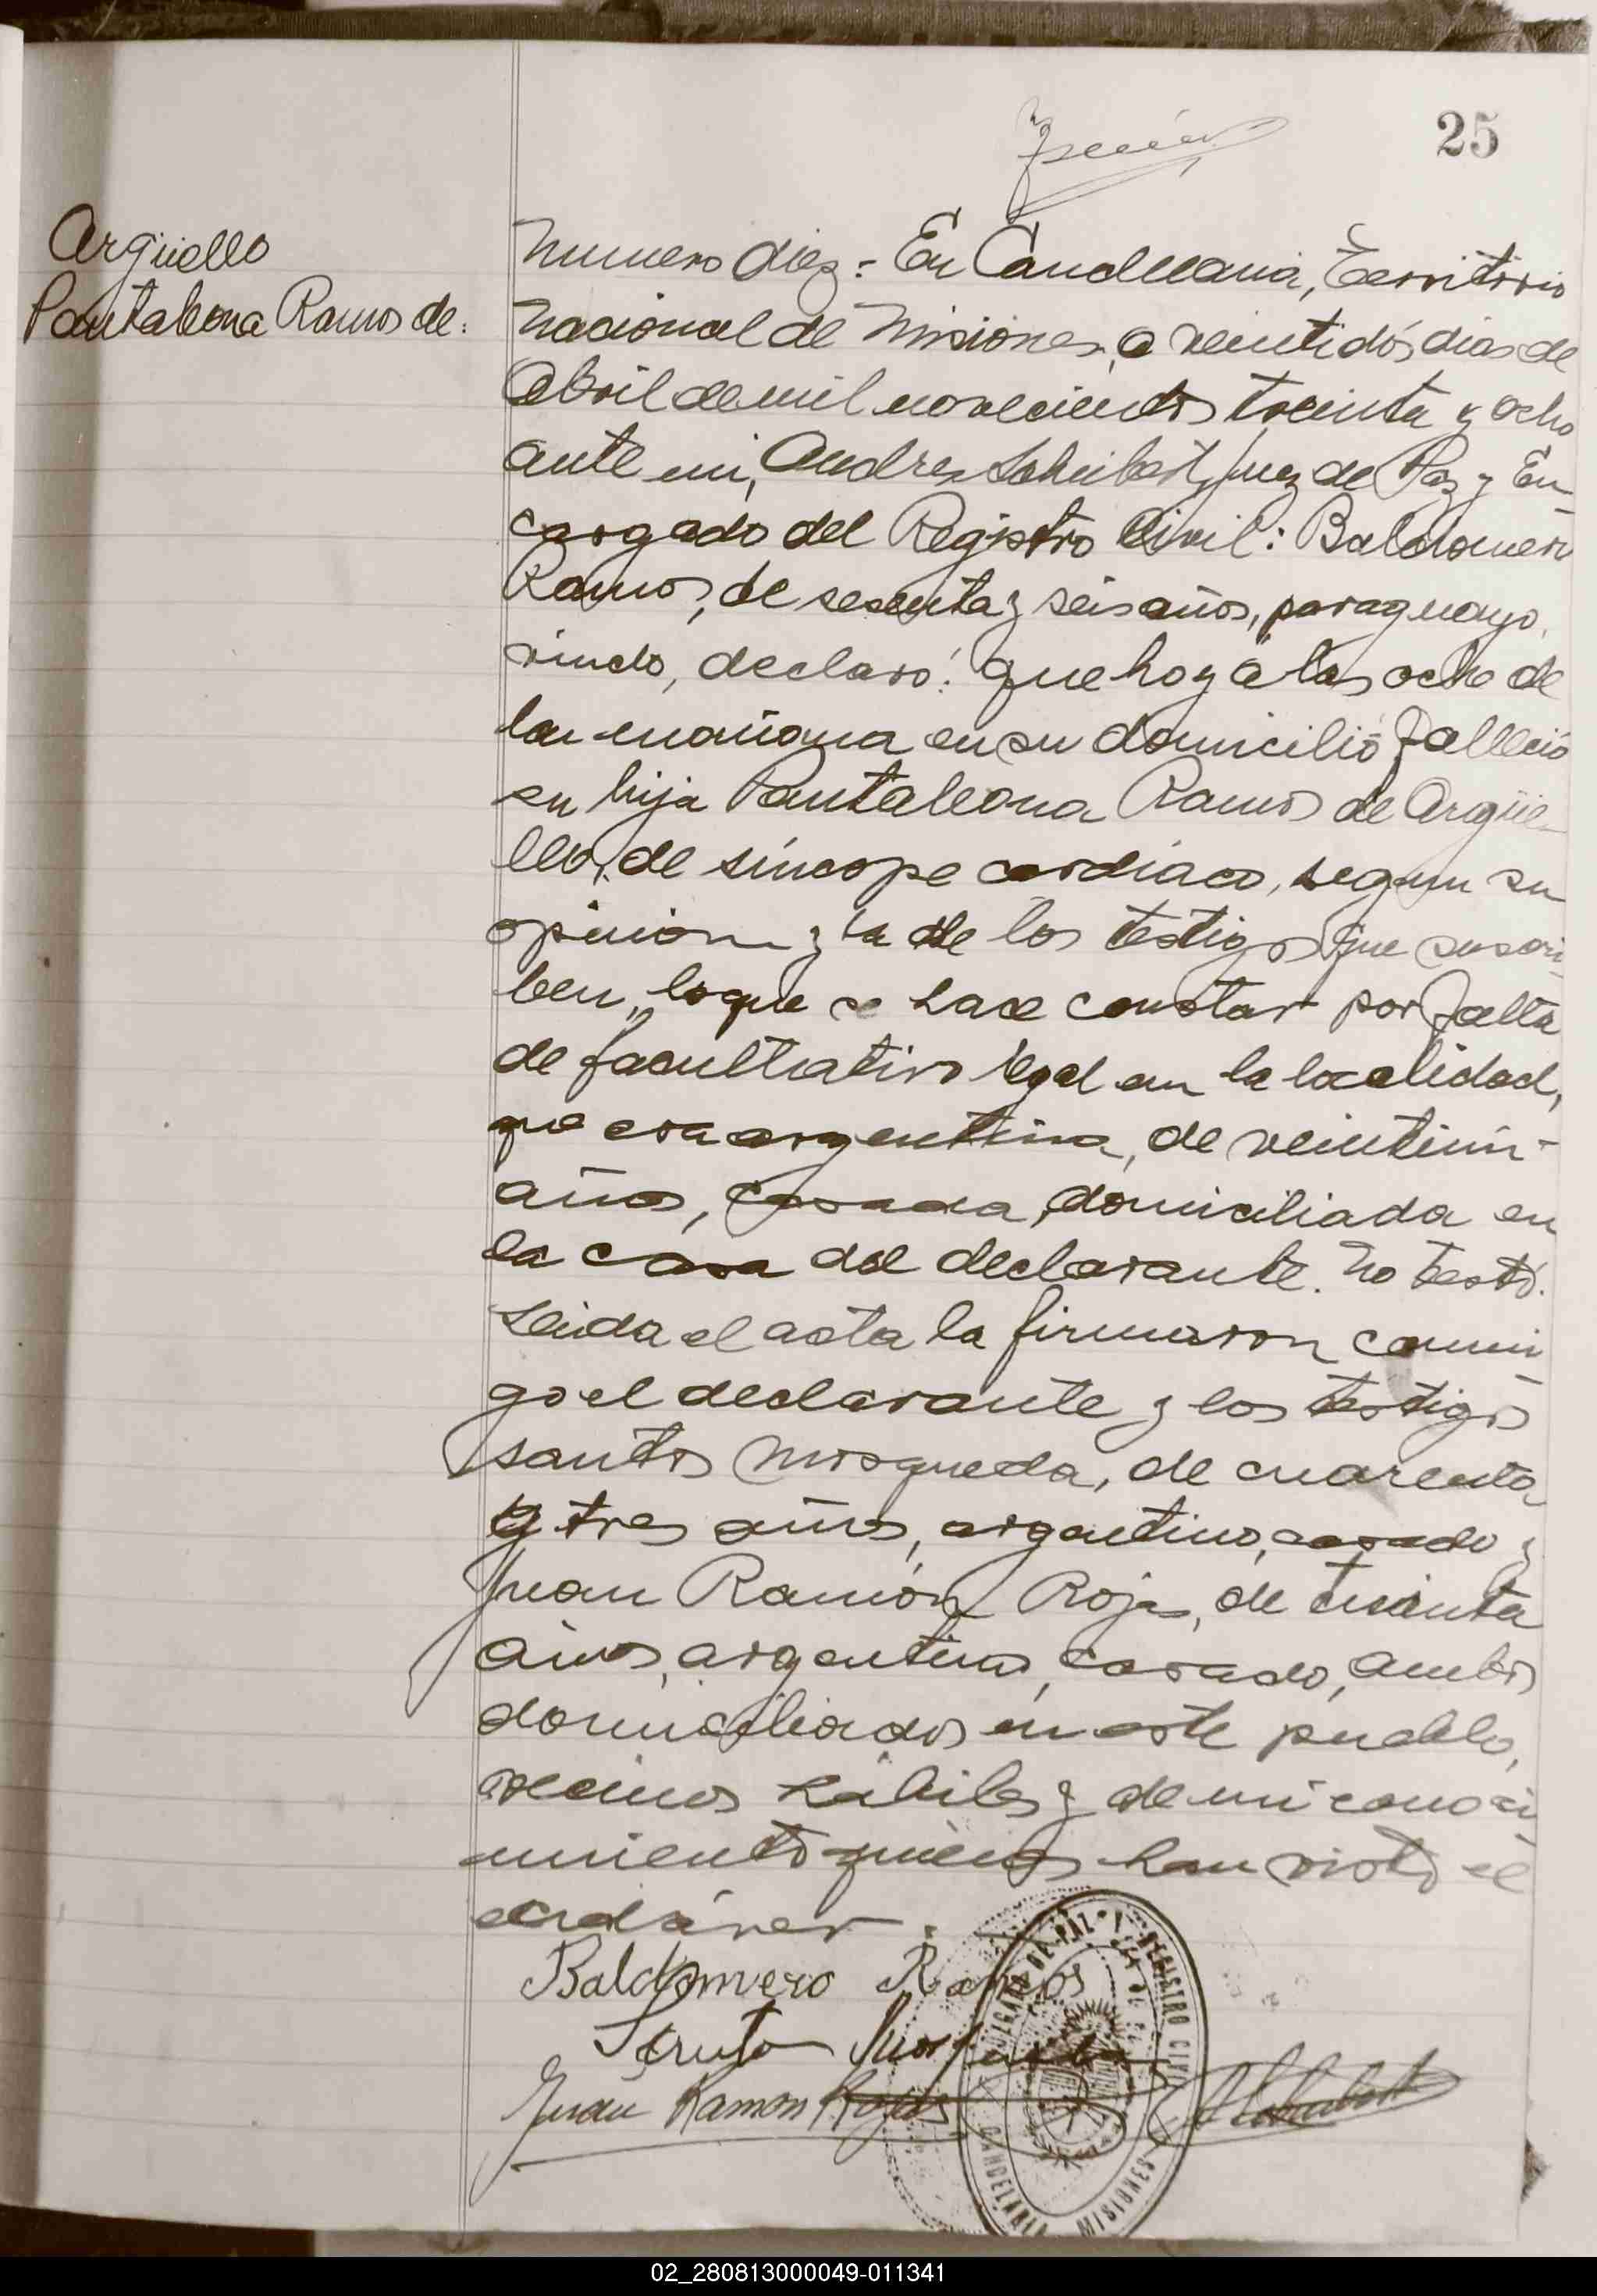 25
Argüello
Pantaleona Ramos de:
Numero diez: En Candelaria, Territorio
Nacional de Misiones, a veintidós dias de
Abril de mil novecientos treinta y ocho
ante mi, Andres Schubert, Juez de Paz y En-
cargado del Registro Civil: Baldomero
Ramos, de sesenta y seis años, paraguayo,
viudo, declaró: que hoy a las ocho de
la mañana en su domicilio falleció
su hija Pantaleona Ramos de Argüe-
llo, de síncope cardiaco, segun su
opinion y la de los testigos que suscri-
ben, lo que se hace constar por falta
de facultativo legal en la localidad,
que era argentina, de veintiun
años, casada, domiciliada en
la casa del declarante. No testó.
Leida el acta la firmaron conmi
go el declarante y los testigos
Santos Mosqueda, de cuarenta
y tres años, argentino, casado y
Juan Ramón Rojas, de treinta
años, argentino, casado, ambos
domiciliados en este pueblo,
vecinos hábiles y de mi conoci
miento quienes han visto el
cadáver.
Baldomero Ramos
Santo Mosqueda
Juan Ramon Rojas
JUZGADO DE PAZ Y REGISTRO CIVIL
CANDELARIA MISIONES
02_280813000049-011341